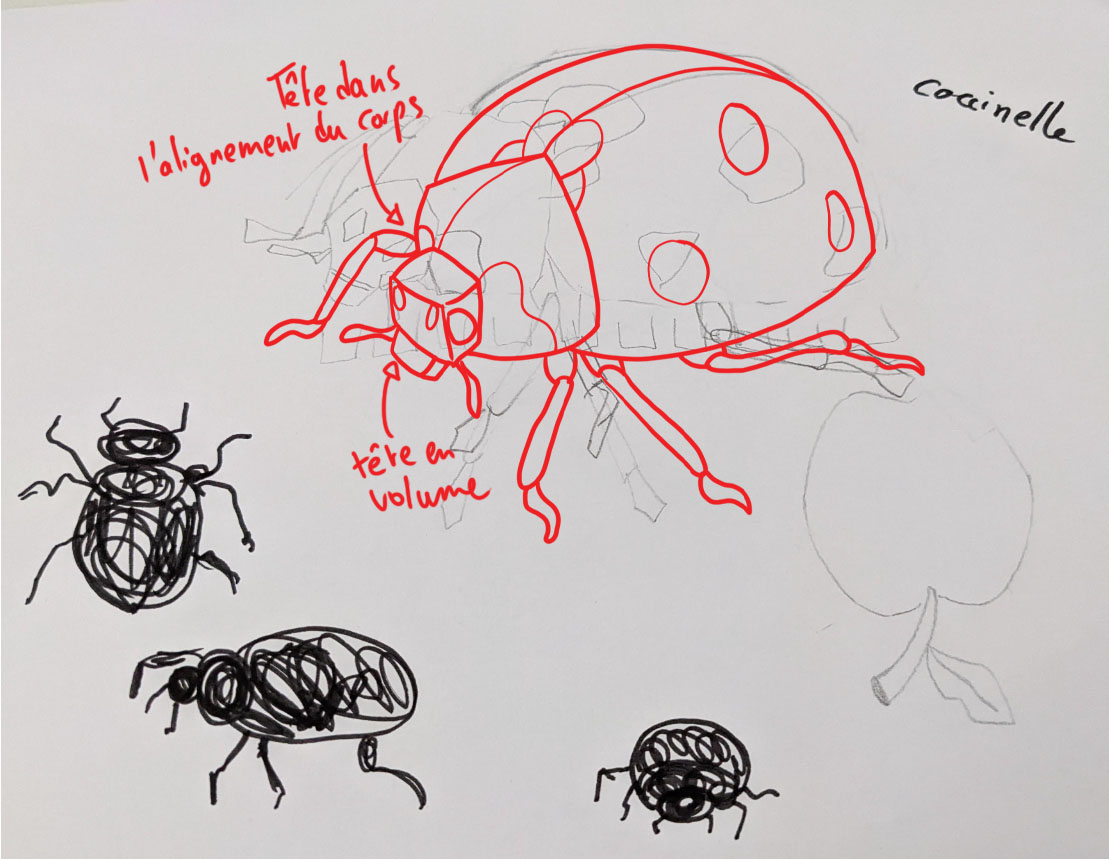 Tête dans
l'alignement du corps
coccinelle
tête en
volume